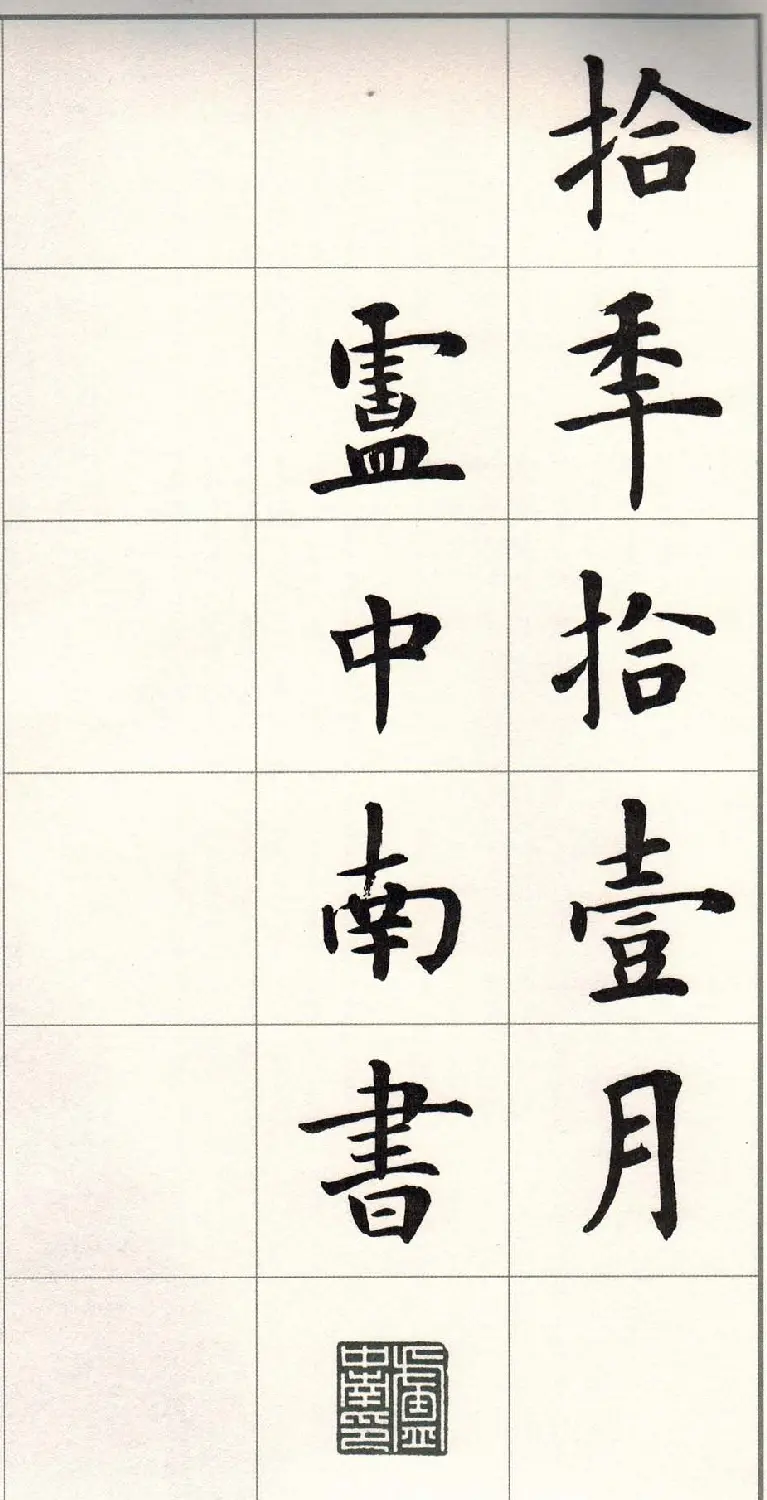 拾季拾壹月
盧中南書
盧中南印